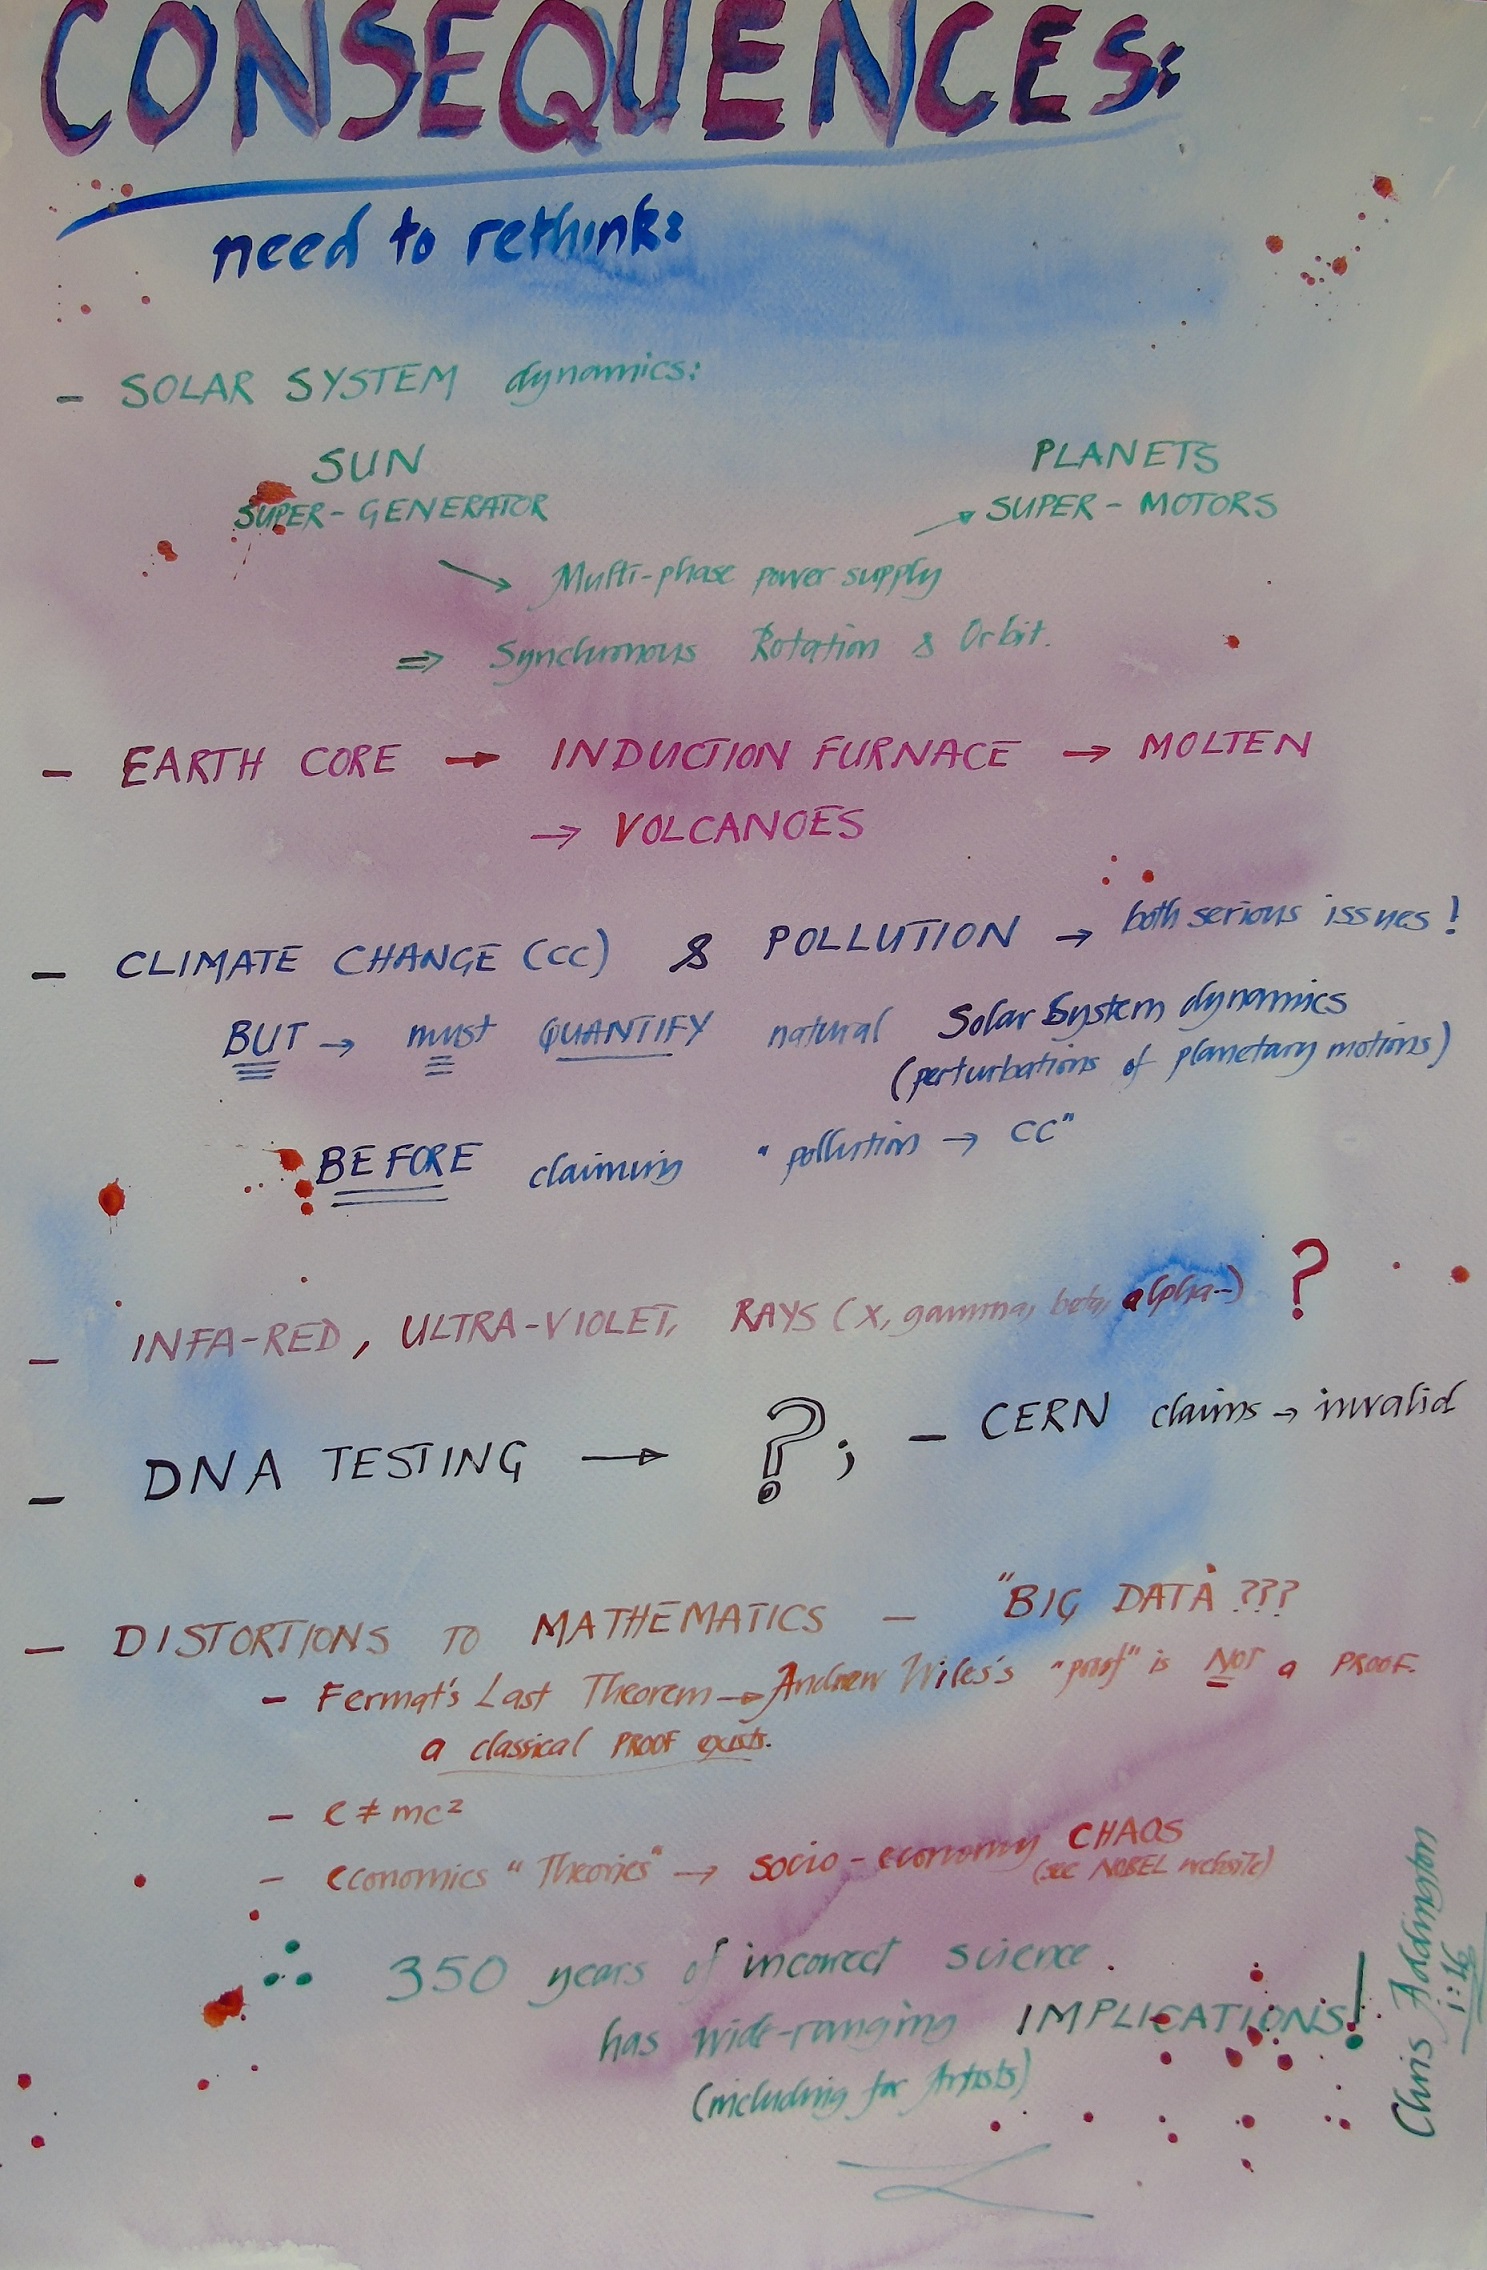 CONSEQUENCES:
need to rethink:
- SOLAR SYSTEM dynamics:
SUN PLANETS
SUPER-GENERATOR → SUPER-MOTORS
→ Multi-phase power supply
⇒ Synchronous Rotation & Orbit.
- EARTH CORE → INDUCTION FURNACE → MOLTEN
→ VOLCANOES
- CLIMATE CHANGE (CC) & POLLUTION → both serious issues!
BUT → must QUANTIFY natural Solar System dynamics
(perturbations of planetary motions)
BEFORE claiming "pollution → CC"
- INFA-RED, ULTRA-VIOLET, RAYS (X, gamma, beta, alpha-) ?
- DNA TESTING → ?; - CERN claims → invalid
- DISTORTIONS TO MATHEMATICS - "BIG DATA" ???
- Fermat's Last Theorem → Andrew Wiles's "proof" is NOT a PROOF.
a classical PROOF exists.
- e ≠ mc²
- economics "Theories" → socio-economy CHAOS
(see NOBEL website)
∴ 350 years of incorrect science.
has wide-ranging IMPLICATIONS!
(including for Artists)
Chris Addington
1:16